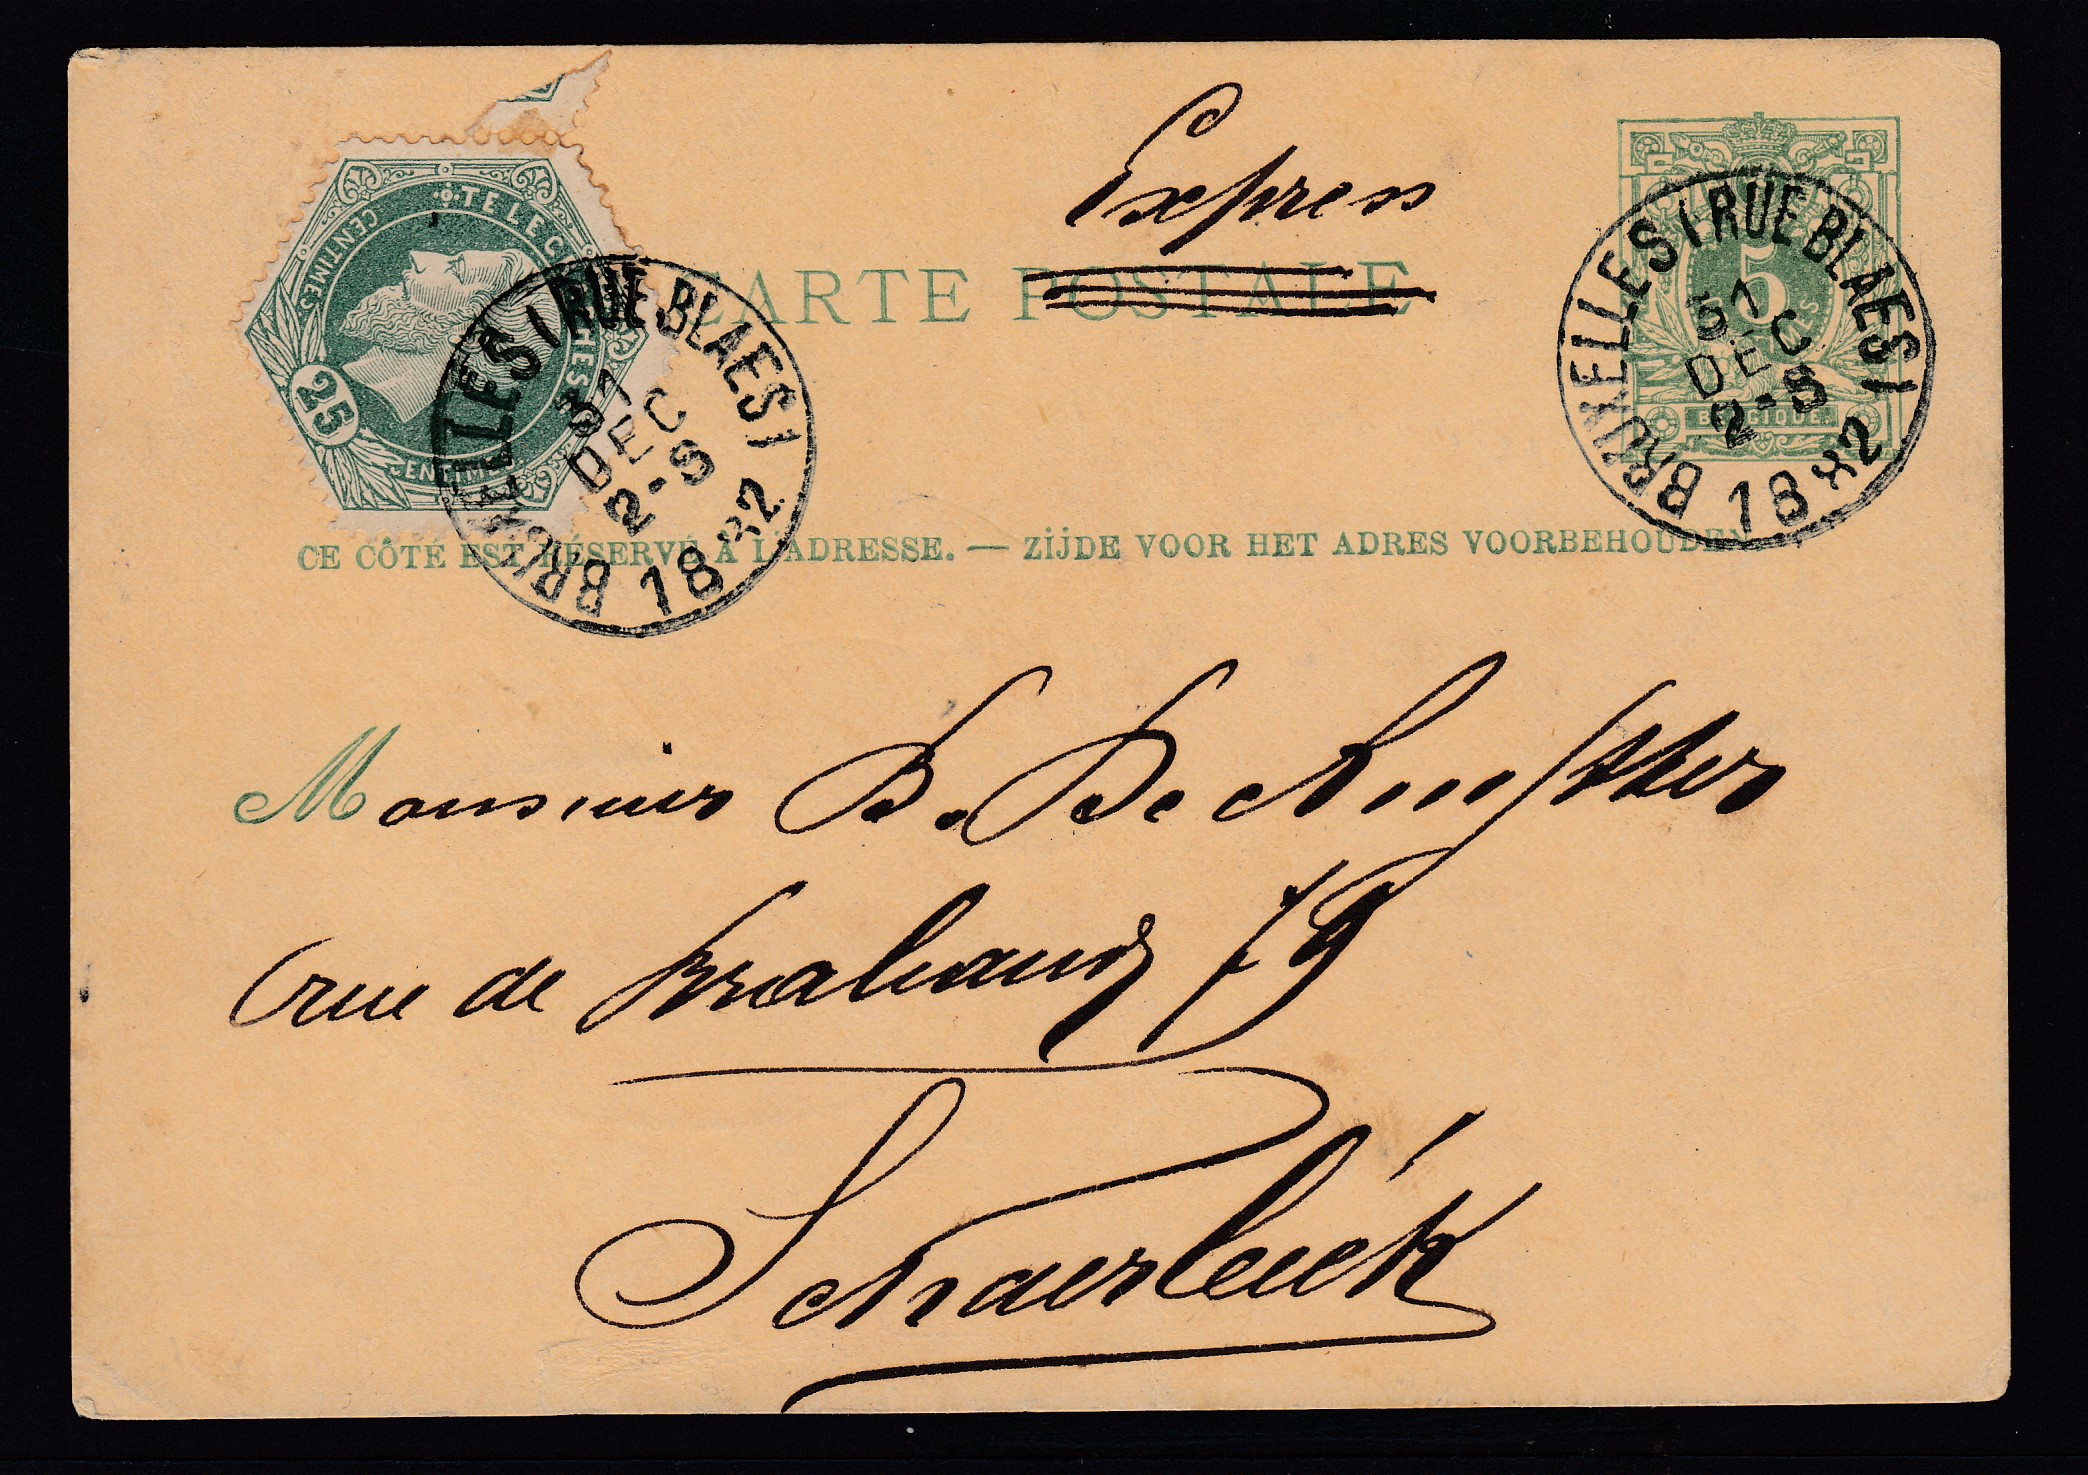 Express
CARTE POSTALE
TELEGRAPHES
CENTIMES
25
CENTIMEN
BRUXELLES (RUE BLAES)
31
DEC
2-S
1882
5
BELGIQUE
BRUXELLES (RUE BLAES)
31
DEC
2-S
1882
CE CÔTÉ EST RÉSERVÉ À L'ADRESSE. — ZIJDE VOOR HET ADRES VOORBEHOUDEN.
Monsieur B. De
rue de Brabant 79
Schaerbeék